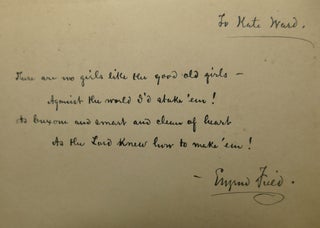 To Kate Ward.
There are no girls like the good old girls –
Against the world I'd stake 'em!
As buxom and smart and clean of heart
As the Lord knew how to make 'em!
– Eugene Field.